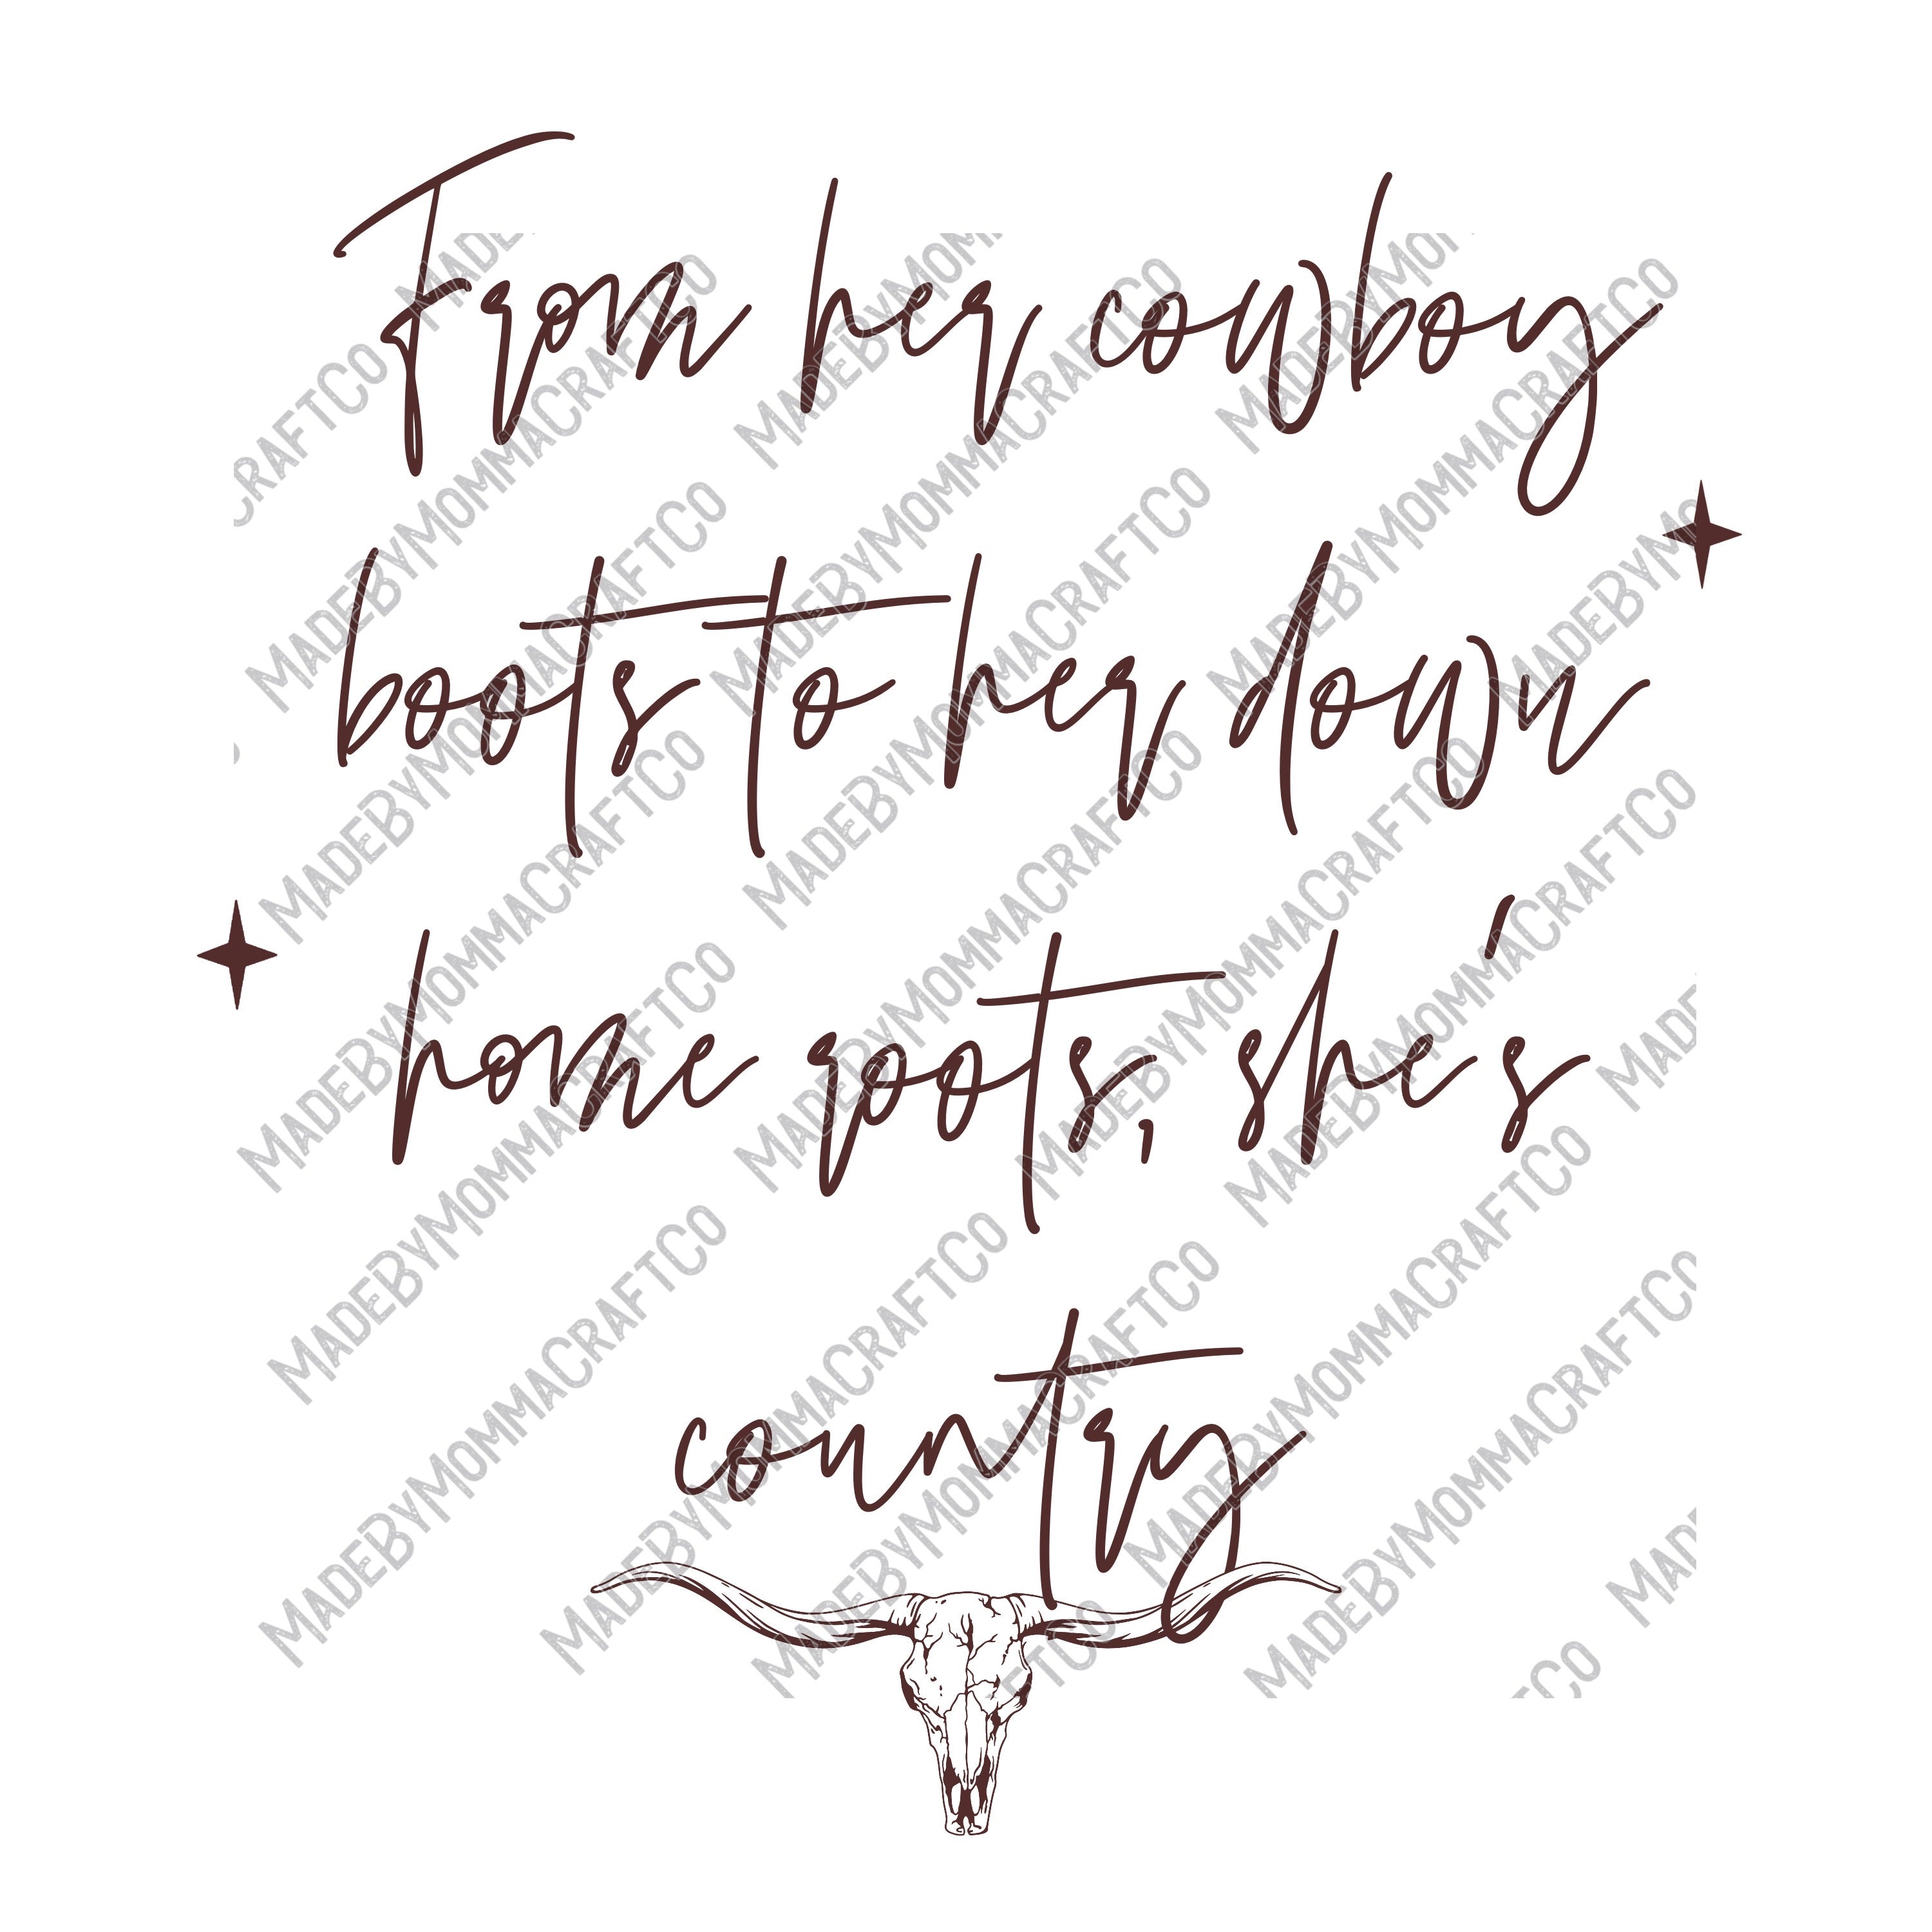 From her cowboy
boots to her down
home roots, she's
country
MADEBYMOMMACRAFTCO